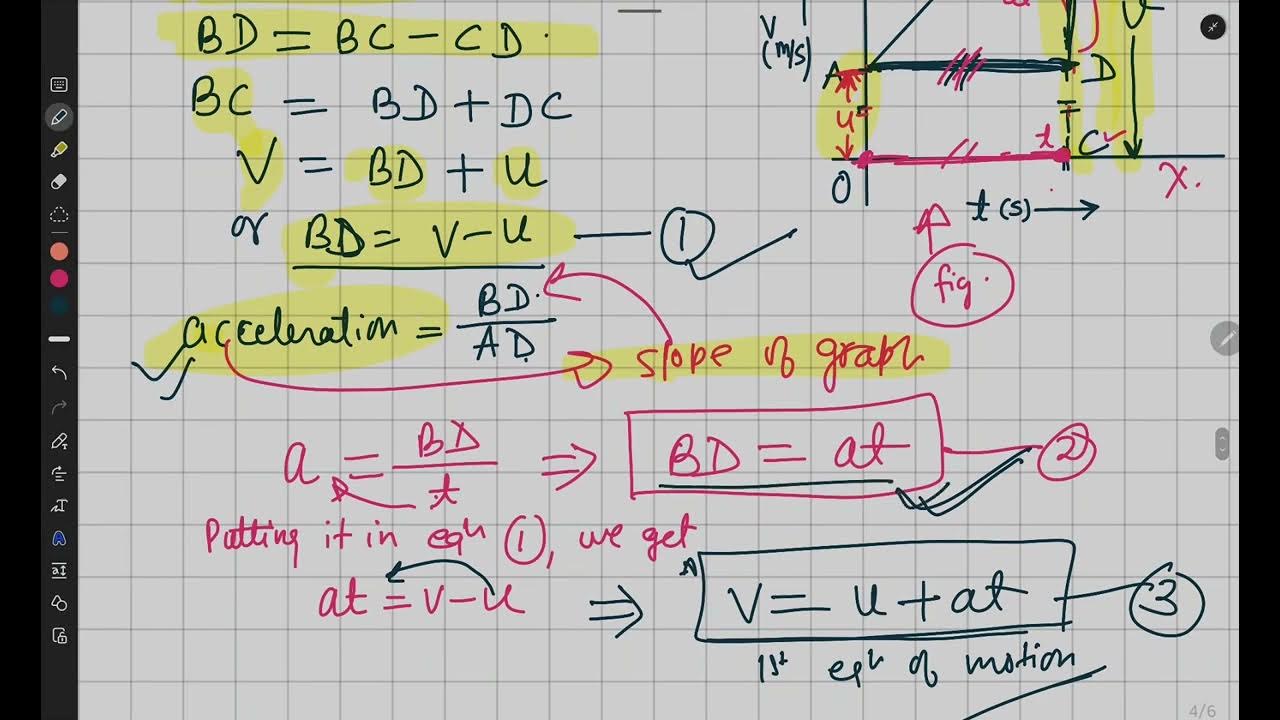 BD = BC - CD.
BC = BD + DC
V = BD + u
or BD = V - u — ①
acceleration = BD/AD
slope of graph
a = BD/t ⇒ BD = at — ②
Putting it in eqn ①, we get
at = v - u ⇒ V = u + at — ③
1st eqn of motion
V
(m/s)
A
D
u
t
C
O
X.
t (s) →
fig.
4/6